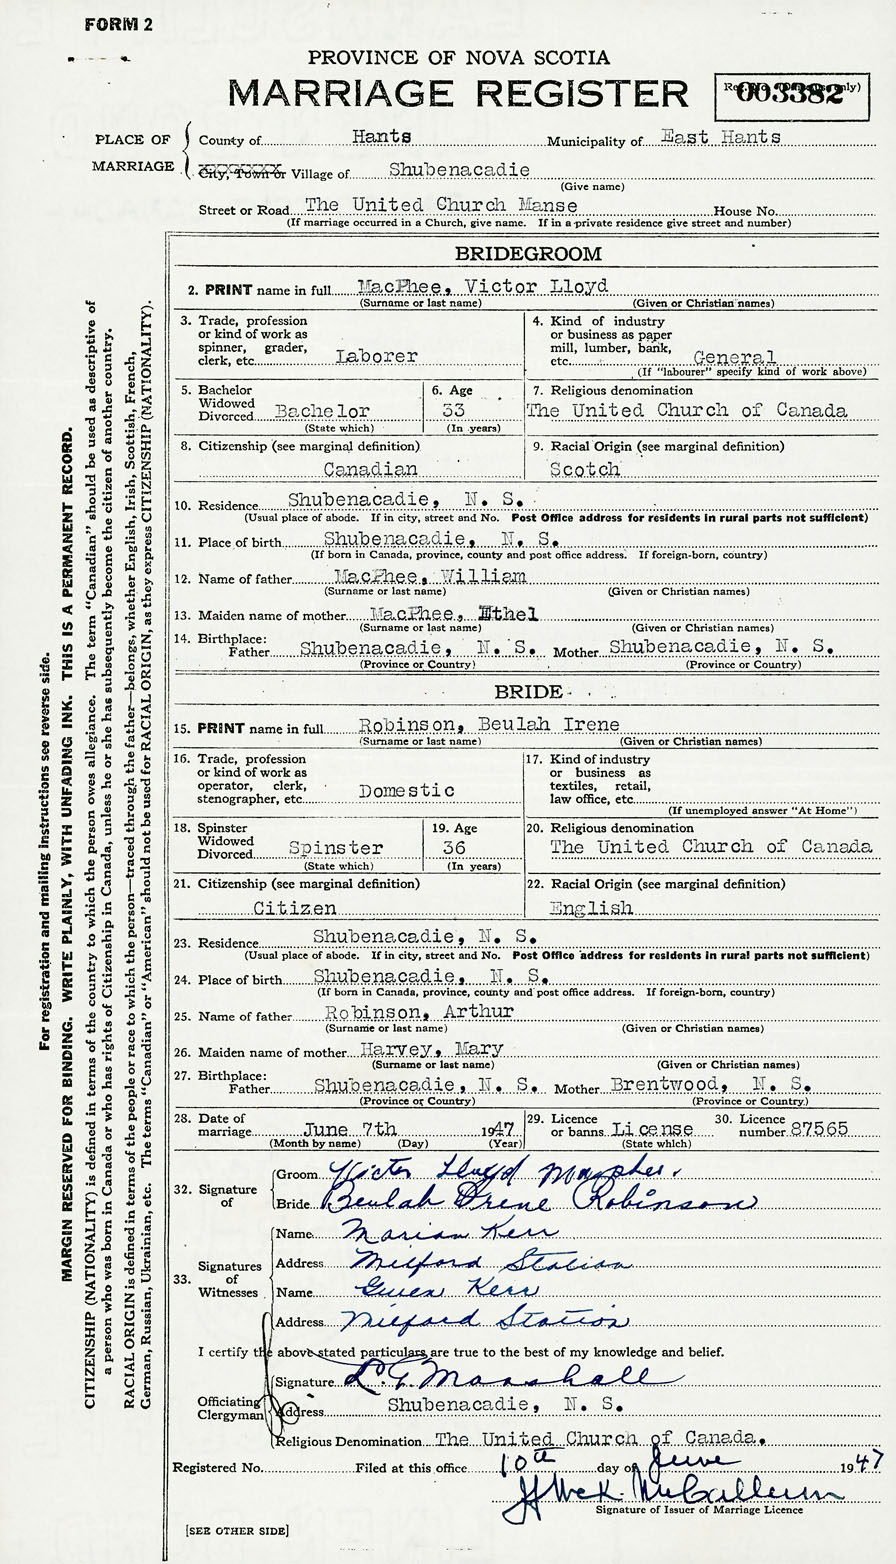 FORM 2
PROVINCE OF NOVA SCOTIA
MARRIAGE REGISTER
003382
PLACE OF MARRIAGE
County of Hants Municipality of East Hants
City, Town or Village of Shubenacadie
(Give name)
Street or Road The United Church Manse House No.
(If marriage occurred in a Church, give name. If in a private residence give street and number)
BRIDEGROOM
2. PRINT name in full MacPhee, Victor Lloyd
(Surname or last name) (Given or Christian names)
3. Trade, profession or kind of work as spinner, grader, clerk, etc. Laborer
4. Kind of industry or business as paper mill, lumber, bank, etc. General
(If "labourer" specify kind of work above)
5. Bachelor Widowed Divorced Bachelor
(State which)
6. Age 33
(In years)
7. Religious denomination
The United Church of Canada
8. Citizenship (see marginal definition)
Canadian
9. Racial Origin (see marginal definition)
Scotch
10. Residence Shubenacadie, N. S.
(Usual place of abode. If in city, street and No. Post Office address for residents in rural parts not sufficient)
11. Place of birth Shubenacadie, N. S.
(If born in Canada, province, county and post office address. If foreign-born, country)
12. Name of father MacPhee, William
(Surname or last name) (Given or Christian names)
13. Maiden name of mother MacPhee, Ethel
(Surname or last name) (Given or Christian names)
14. Birthplace:
Father Shubenacadie, N. S. Mother Shubenacadie, N. S.
(Province or Country) (Province or Country)
BRIDE
15. PRINT name in full Robinson, Beulah Irene
(Surname or last name) (Given or Christian names)
16. Trade, profession or kind of work as operator, clerk, stenographer, etc. Domestic
17. Kind of industry or business as textiles, retail, law office, etc.
(If unemployed answer "At Home")
18. Spinster Widowed Divorced Spinster
(State which)
19. Age 36
(In years)
20. Religious denomination
The United Church of Canada
21. Citizenship (see marginal definition)
Citizen
22. Racial Origin (see marginal definition)
English
23. Residence Shubenacadie, N. S.
(Usual place of abode. If in city, street and No. Post Office address for residents in rural parts not sufficient)
24. Place of birth Shubenacadie, N. S.
(If born in Canada, province, county and post office address. If foreign-born, country)
25. Name of father Robinson, Arthur
(Surname or last name) (Given or Christian names)
26. Maiden name of mother Harvey, Mary
(Surname or last name) (Given or Christian names)
27. Birthplace:
Father Shubenacadie, N. S. Mother Brentwood, N. S.
(Province or Country) (Province or Country)
28. Date of marriage June 7th 1947
(Month by name) (Day) (Year)
29. Licence or banns License
(State which)
30. Licence number 87565
32. Signature of
Groom Victor Lloyd Macphee.
Bride Beulah Irene Robinson
33. Signatures of Witnesses
Name Marian Kerr
Address Milford Station
Name Gwen Kerr
Address Milford Station
I certify the above stated particulars are true to the best of my knowledge and belief.
Officiating Clergyman
Signature L. G. Marshall
Address Shubenacadie, N. S.
Religious Denomination The United Church of Canada.
Registered No. Filed at this office 10th day of June 1947
McCallum
Signature of Issuer of Marriage Licence
[SEE OTHER SIDE]
For registration and mailing instructions see reverse side.
MARGIN RESERVED FOR BINDING. WRITE PLAINLY, WITH UNFADING INK. THIS IS A PERMANENT RECORD.
CITIZENSHIP (NATIONALITY) is defined in terms of the country to which the person owes allegiance. The term "Canadian" should be used as descriptive of
a person who was born in Canada or who has rights of Citizenship in Canada, unless he or she has subsequently become the citizen of another country.
RACIAL ORIGIN is defined in terms of the people or race to which the person—traced through the father—belongs, whether English, Irish, Scottish, French,
German, Russian, Ukrainian, etc. The terms "Canadian" or "American" should not be used for RACIAL ORIGIN, as they express CITIZENSHIP (NATIONALITY).